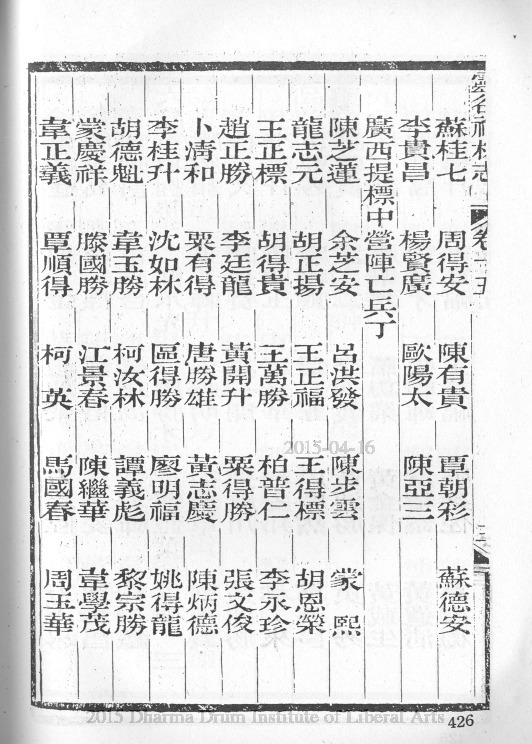 蘇桂七 周得安 陳有貴 覃朝彩 蘇德安
李貴昌 楊賢廣 歐陽太 陳亞三
廣西提標中營陣亡兵丁
陳芝蓮 余芝安 呂洪發 陳步雲 蒙熙
龍志元 胡正揚 王正福 王得標 胡恩榮
王正標 胡得貴 王萬勝 柏普仁 李永珍
趙正勝 李廷龍 黃開升 粟得勝 張文俊
卜清和 粟有得 唐勝雄 黃志慶 陳炳德
李桂升 沈如林 區得勝 廖明福 姚得龍
胡德魁 韋玉勝 柯汝林 譚義彪 黎宗勝
蒙慶祥 滕國勝 江景春 陳繼華 韋學茂
韋正義 覃順得 柯英 馬國春 周玉華
426
2015-04-16
2015 Dharma Drum Institute of Liberal Arts